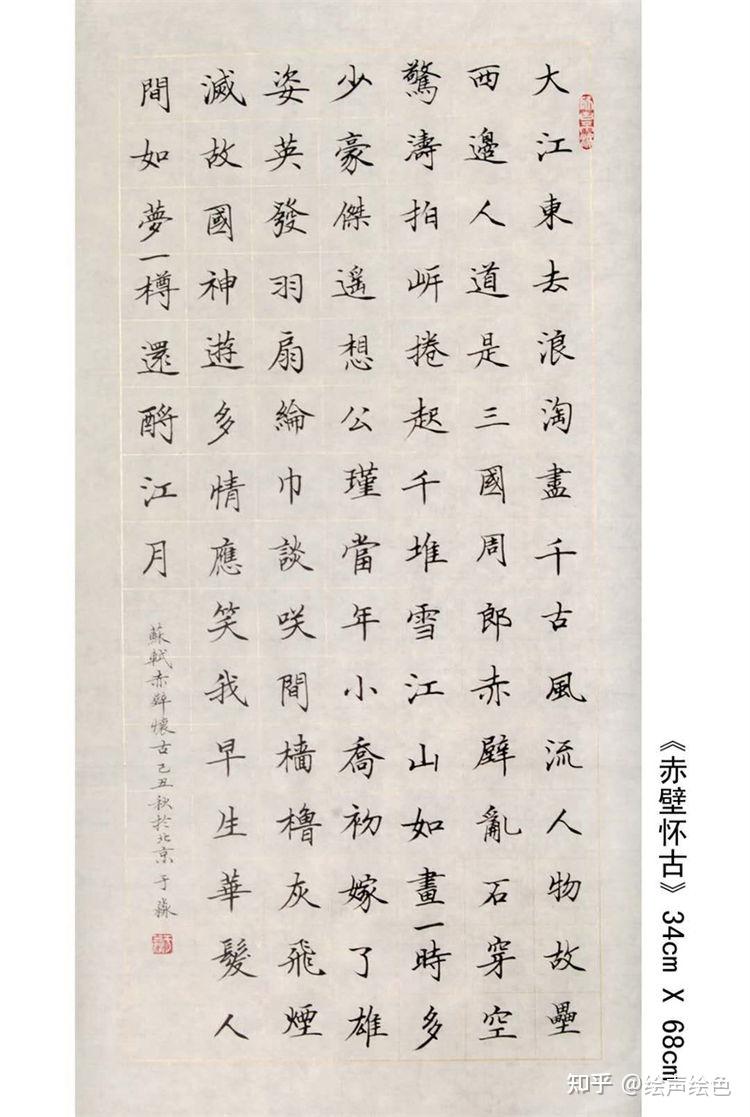 大江東去浪淘盡千古風流人物故壘
西邊人道是三國周郎赤壁亂石穿空
驚濤拍岍捲起千堆雪江山如畫一時多
少豪傑遥想公瑾當年小喬初嫁了雄
姿英發羽扇綸巾談咲間檣櫓灰飛煙
滅故國神遊多情應笑我早生華髮人
間如夢一樽還酹江月
蘇軾赤壁懷古己丑秋於北京于淼
《赤壁怀古》34cm X 68cm
知乎 @绘声绘色